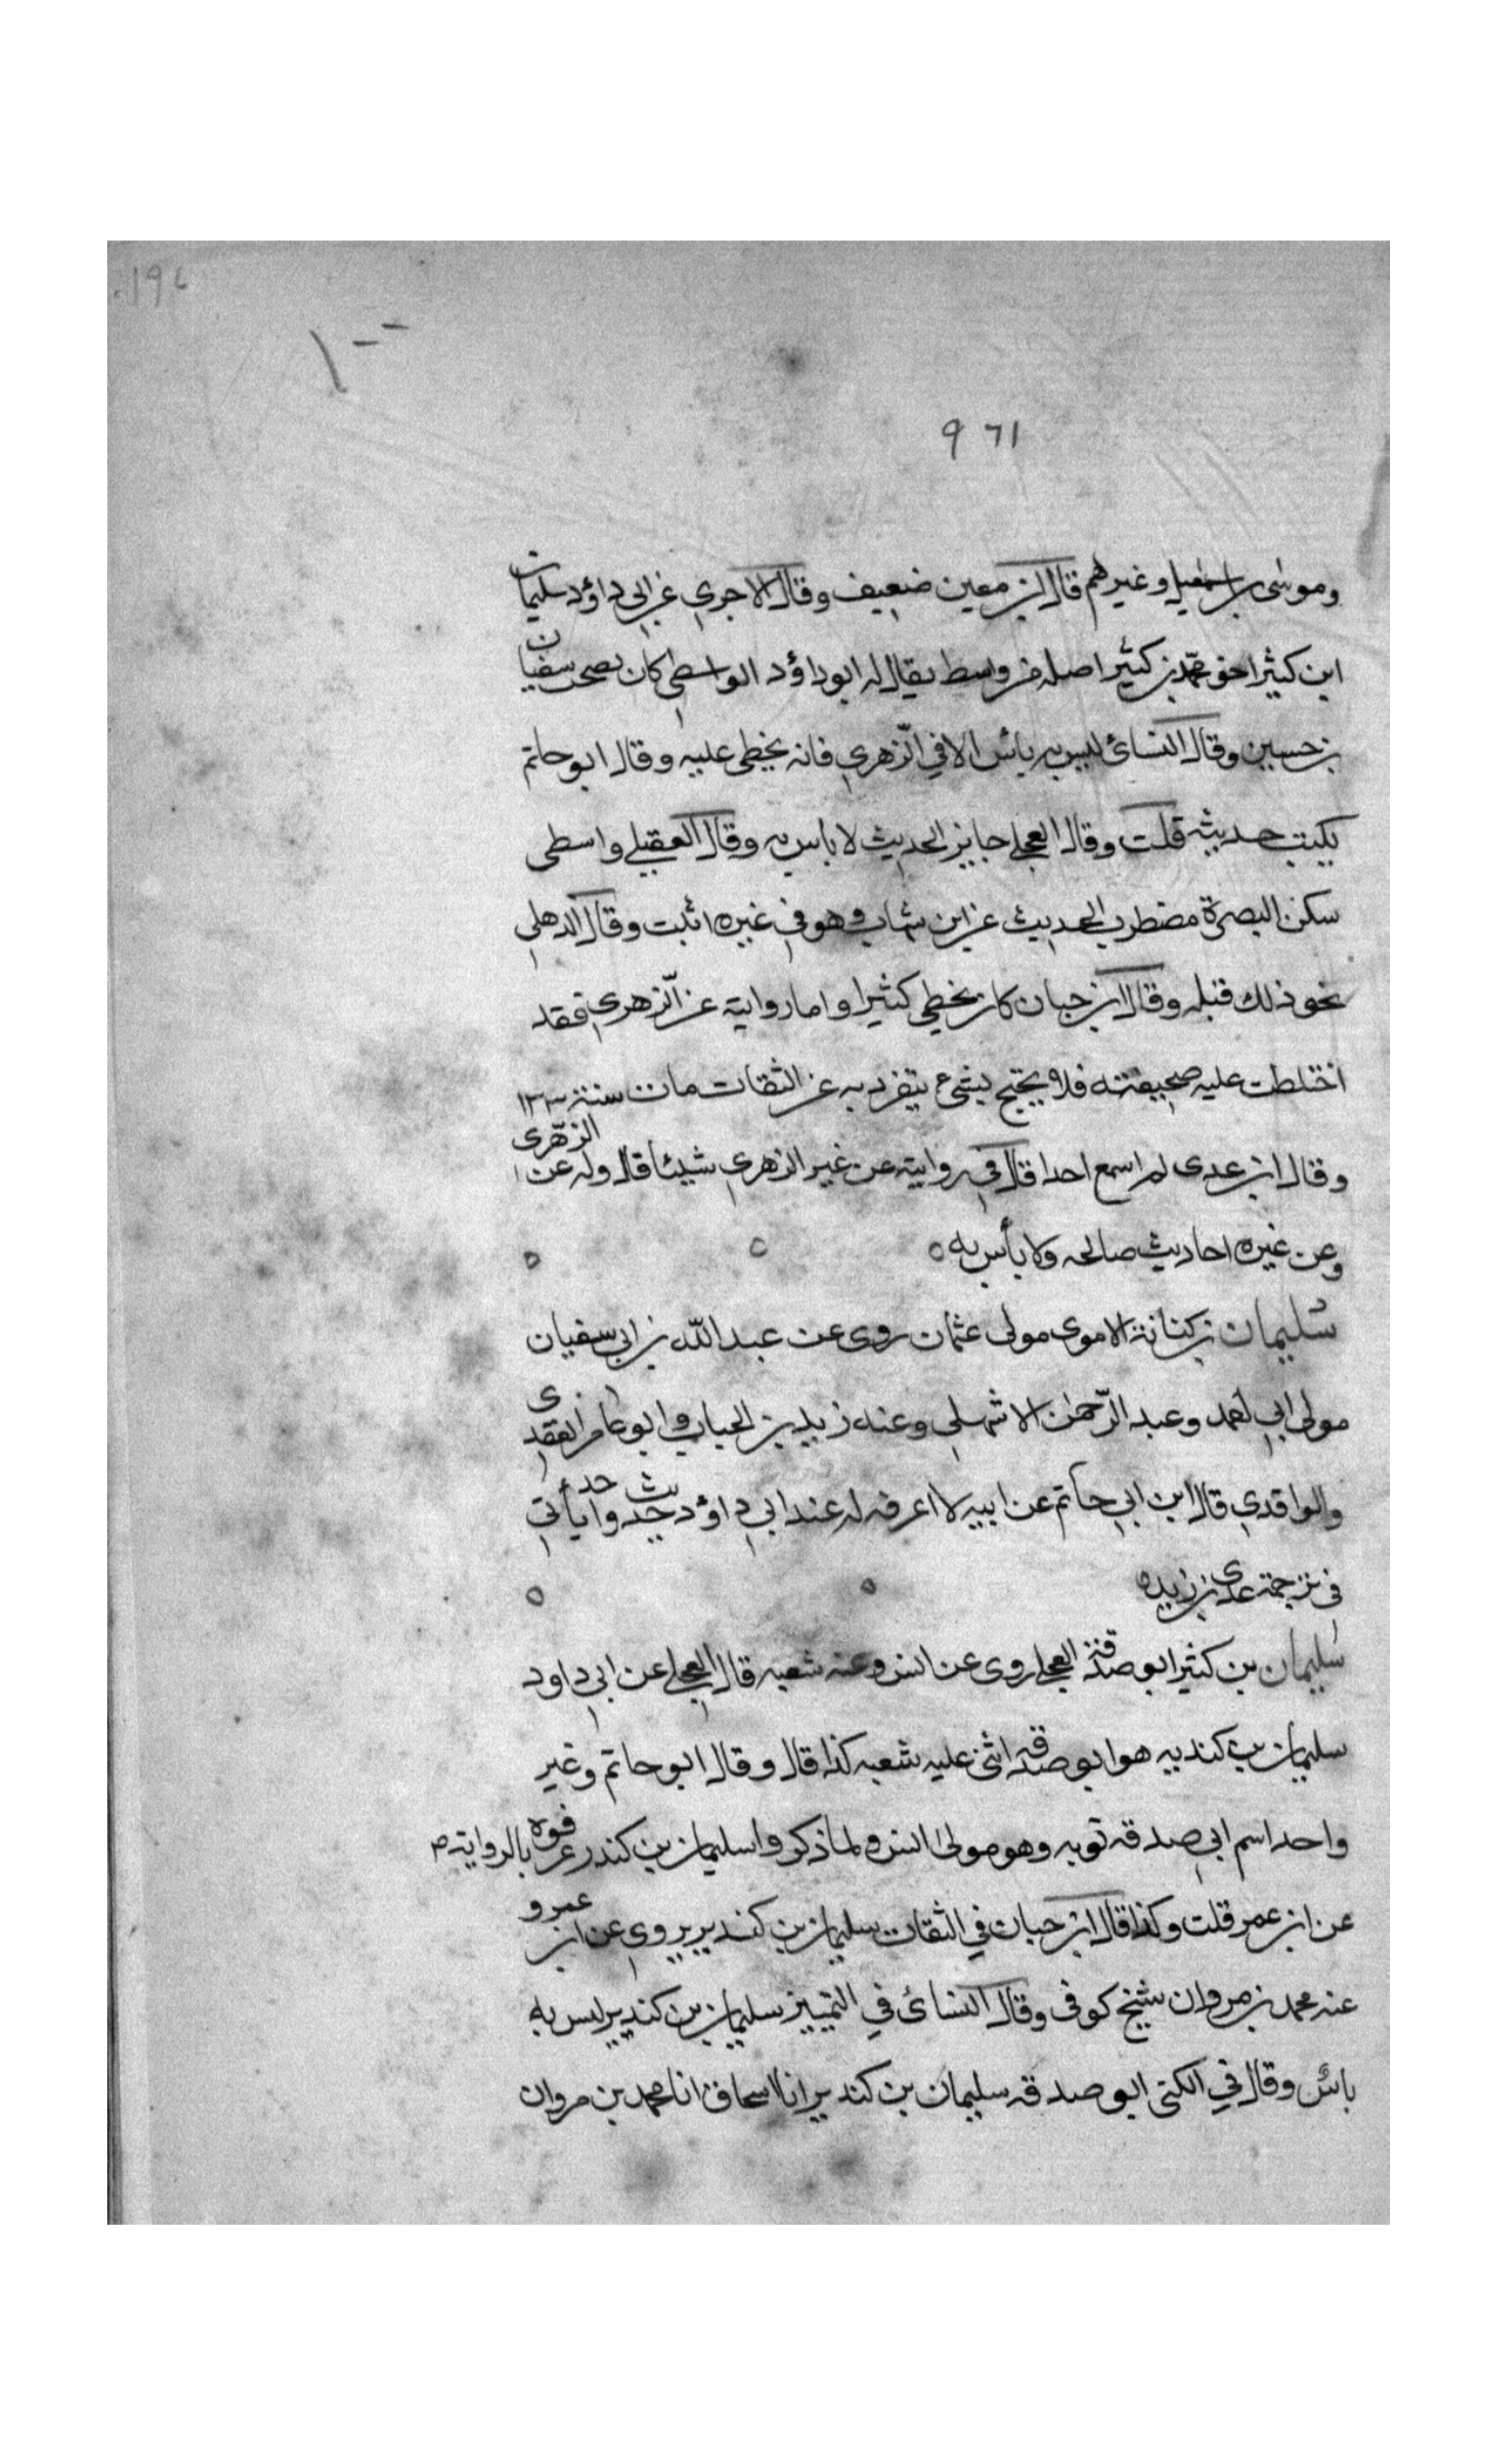 196
١--
٩٦١
وموسى بن اسمعيل وغيرهم قال ابن معين ضعيف وقال الاجري عن ابي داؤد سليمان
ابن كثير اخو محمد بن كثير اصله من واسط يقال له ابو داؤد الواسطي كان يصحب سفيان
بن حسين وقال النسائ ليس به بائس الا في الزهري فانه يخطى عليه وقال ابو حاتم
يكتب حديثه قلت وقال العجلي جايز الحديث لا باس به وقال العقيلي واسطى
سكن البصرة مضطرب الحديث عن ابن شهاب وهو في غيره اثبت وقال الدهلي
نحو ذلك قبله وقال ابن حبان كان يخطي كثيرا واما رواية عن الزهري فقد
اختلطت عليه صحيفته فلا يحتج بشيء يتفرد به عن الثقات مات سنة ١٣٣
وقال ابن عدى لم اسمع احدا قال في رواية عن غير الزهري شيئا قال وله عن الزهرى
وعن غيره احاديث صالحه ولا بأس به
سليمان بن كنانة الاموى مولى عثمان روى عن عبد الله بن ابي سفيان
مولى ابي احمد وعبد الرحمن الاشهلي وعنه زيد بن الحباب وابو عامر العقدى
والواقدي قال ابن ابي حاتم عن ابيه لا اعرفه له عند ابي داؤد حديث واحد يأتي
في ترجمة عدى بن زيد
سليمان بن كثير ابو صدقة العجلي روى عن انس وعنه شعبه قال العجلي عن ابي داود
سليمان بن كنديه هو ابو صدقه اثنى عليه شعبه كذا قال وقال ابو حاتم وغير
واحد اسم ابي صدقه توبه وهو مولى انس ولما ذكروا سليمان بن كندر عرفوه بالرواية
عن ابن عمر قلت وكذا قال ابن حبان في الثقات سليمان بن كندير يروي عن ابن عمرو
عنه محمد بن مروان شيخ كوفى وقال النسائ في التمييز سليمان بن كندير ليس به
بائس وقال في الكنى ابو صدقه سليمان بن كندير انا اسحاق انا محمد بن مروان